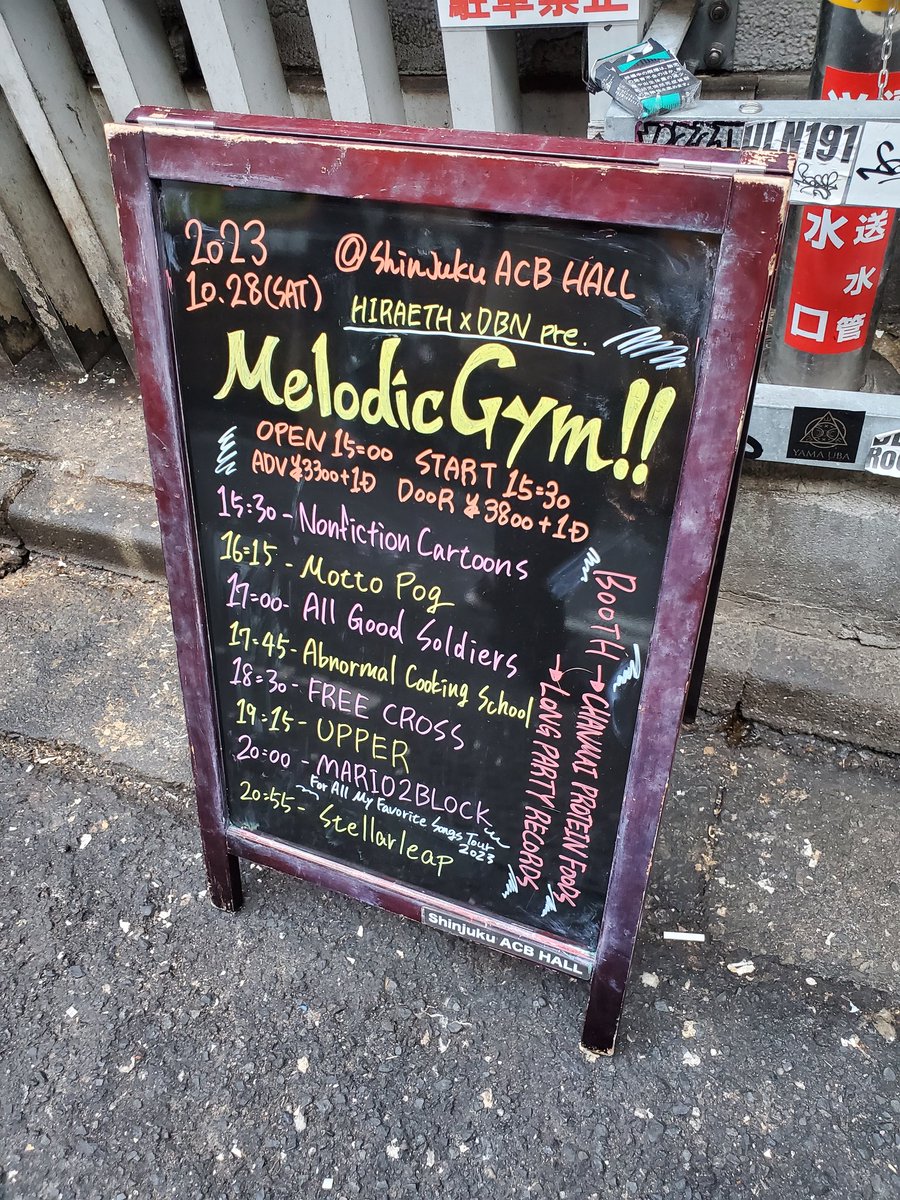 駐車禁止
2023
10.28(SAT)
@ShinJuku ACB HALL
HIRAETH x DBN pre.
Melodic Gym!!
OPEN 15=00 START 15=30
ADV ¥3300+1D DOOR ¥3800+1D
15:30 - Nonfiction Cartoons
16=15 - Motto Pog
17=00- All Good Soldiers
17=45 - Abnormal Cooking School
18=30 - FREE CROSS
19=15 - UPPER
20=00 - MARIO2BLOCK
For All My Favorite Songs Tour
2023
20=55 - Stellarleap
BOOTH → CHINJUUI PROTEIN FOODS
→ LONG PARTY RECORDS
Shinjuku ACB HALL
送水
水
口管
YAMA UBA